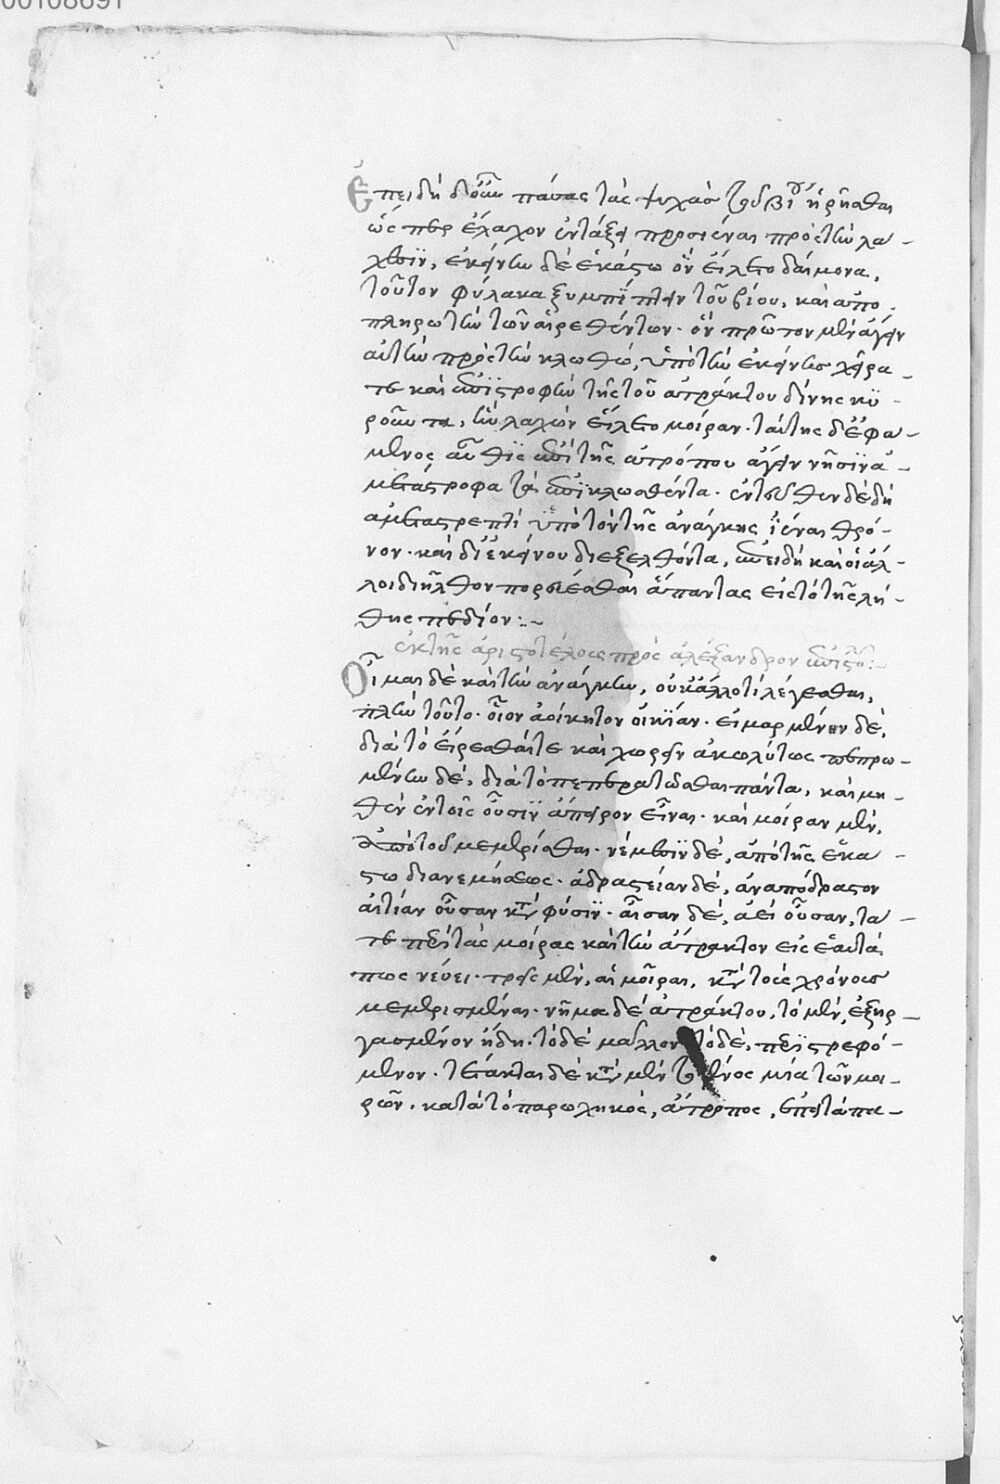 00108691
Ἐπειδὴ δ' οὖν πάσας τὰς ψυχὰς τοὺς βίους ἡρῆσθαι
ὥσπερ ἔλαχον ἐν τάξει προσιέναι πρὸς τὴν λά-
χεσιν, ἐκείνην δὲ ἑκάστω ὃν εἵλετο δαίμονα,
τοῦτον φύλακα ξυμπέμπειν τοῦ βίου, καὶ ἀπο-
πληρωτὴν τῶν αἱρεθέντων. ὃν πρῶτον μὲν ἄγειν
αὐτὴν πρὸς τὴν κλωθώ, ὑπὸ τὴν ἐκείνης χεῖρά
τε καὶ ἐπιστροφὴν τῆς τοῦ ἀτράκτου δίνης κυ-
ροῦντα, ἣν λαχὼν εἵλετο μοῖραν. ταύτης δ' ἐφα-
μενος αὖθις ἐπὶ τὴς ἀτρόπου ἄγειν νῆσιν ἀ-
μετάστροφα τὰ ἐπικλωσθέντα. ἐντεῦθεν δὲ δὴ
ἀμεταστρεπτὶ ὑπὸ τὸν τῆς ἀνάγκης ἰέναι θρό-
νον. καὶ δι' ἐκείνου διεξελθόντα, ἐπειδὴ καὶ οἱ ἄλ-
λοι διῆλθον πορεύεσθαι ἅπαντας εἰς τὸ τῆς λή-
θης πεδίον:~
ἐκ τῆς ἀριστοτέλους πρὸς ἀλέξανδρον ἐπιστο:-
Οἶμαι δὲ καὶ τὴν ἀνάγκην, οὐκ ἄλλό τι λέγεσθαι,
πλὴν τοῦτο. οἷον ἀοίκητον οἰκίαν. εἱμαρμένην δὲ,
διὰ τὸ εἴρεσθαί τε καὶ χωρεῖν ἀκωλύτως πεπρω-
μένην δὲ, διὰ τὸ πεπερατῶσθαι πάντα, καὶ μη-
θὲν ἐν τοῖς οὖσιν ἄπειρον εἶναι. καὶ μοῖραν μὲν,
ἀπὸ τοῦ μεμερίσθαι. νέμεσιν δὲ, ἀπὸ τῆς ἑκά-
στω διανεμήσεως. ἀδράστειαν δὲ, ἀναπόδραστον
αἰτίαν οὖσαν κατὰ φύσιν. αἶσαν δὲ, ἀεὶ οὖσαν, τά
τε περὶ τὰς μοίρας καὶ τὴν ἄτρακτον εἰς ἑαυτά
πως νεύει. τρεῖς μὲν, αἱ μοῖραι, κατὰ τοὺς χρόνους
μεμερισμέναι. νῆμα δὲ ἀτράκτου, τὸ μὲν, ἐξειρ-
γασμένον ἤδη. τὸ δὲ μέλλον τὸ δὲ, περιστρεφό-
μενον. τέτακται δὲ κατὰ μὲν γενός μία τῶν μοι-
ρῶν. κατὰ τὸ παρωχηκὸς, ἄτροπος, ἐπεὶ τὰ πα-